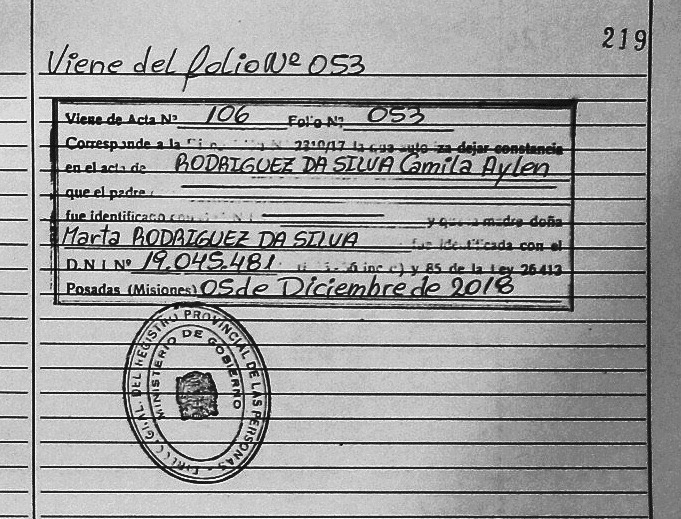 219
Viene del folio Nº 053
Viene de Acta Nº 106 Folio Nº 053
Corresponde a la 2310/17 la cual autoriza dejar constancia
en el acta de RODRIGUEZ DA SILVA Camila Aylen
que el padre
fue identificado con y que la madre doña
Marta RODRIGUEZ DA SILVA fue identificada con el
D.N.I Nº 19.045.481 inc c) y 85 de la Ley 26413
Posadas (Misiones) 05 de Diciembre de 2018
REGISTRO PROVINCIAL DE LAS PERSONAS
MINISTERIO DE GOBIERNO